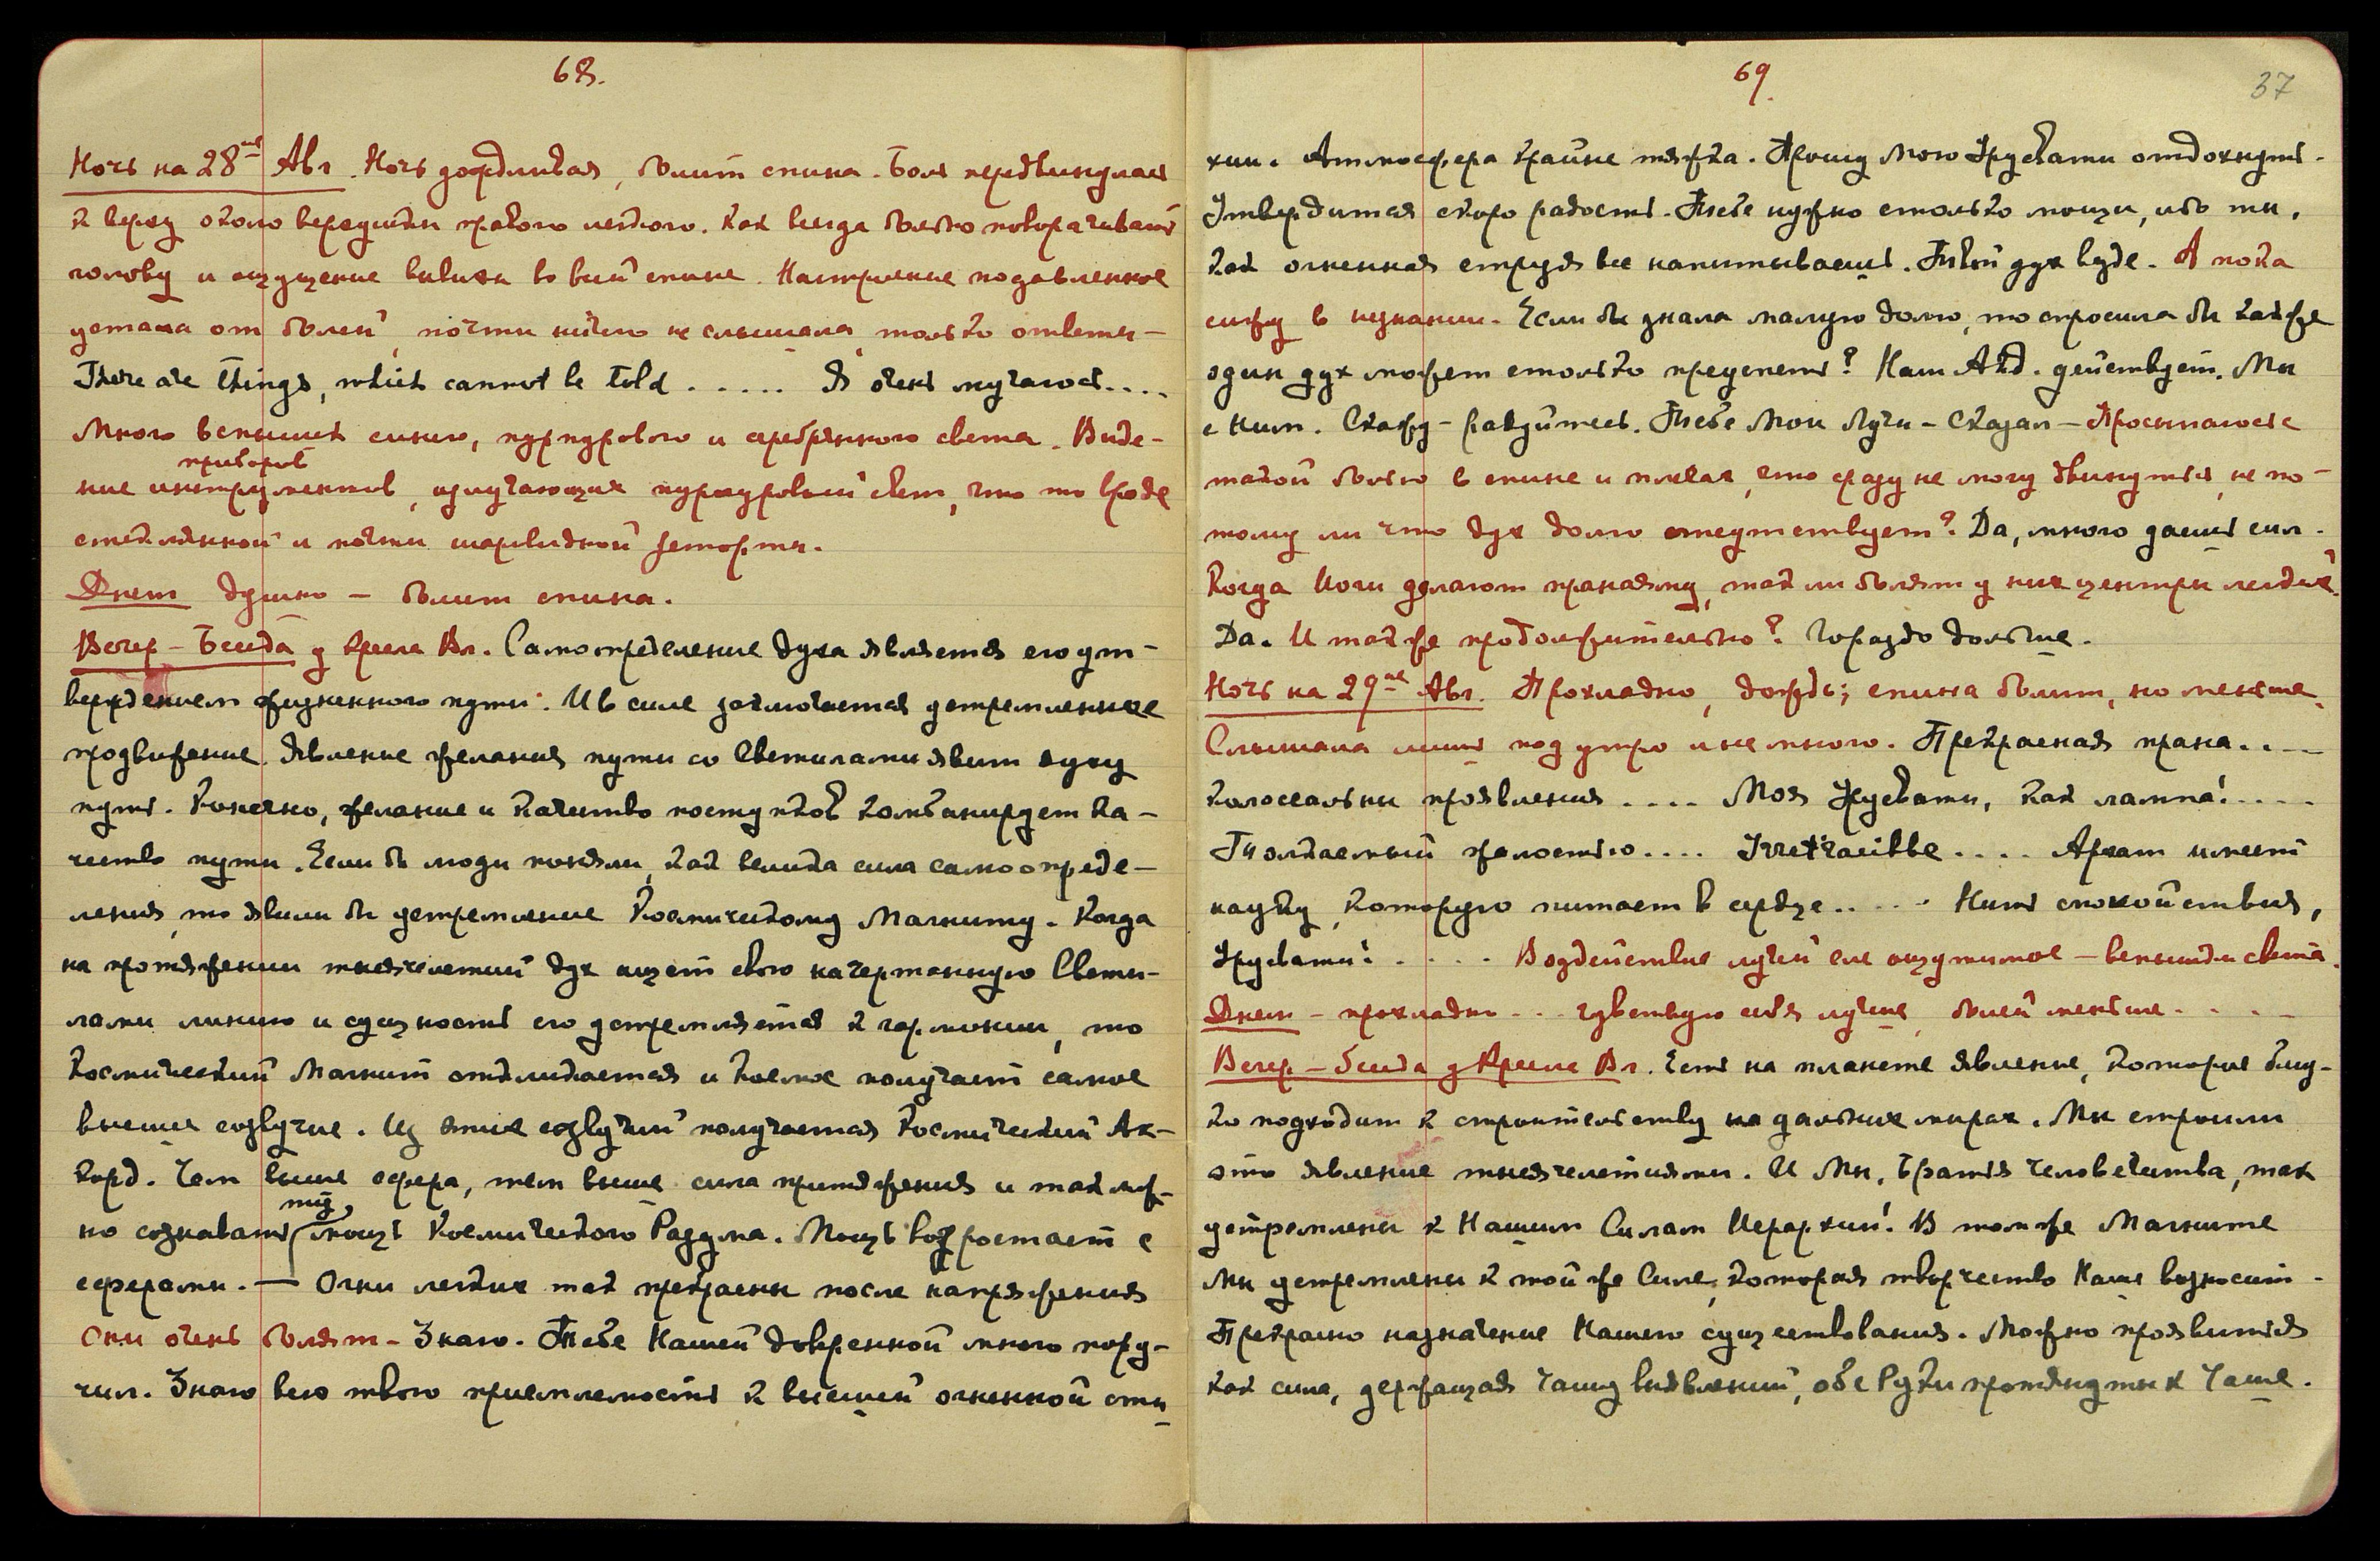 68.
Ночь на 28ое Авг. Ночь дождливая, болит спина. Боль передвинулась
к верху около верхушки правого легкого. Как всегда больно поворачивать
голову и ощущение вывиха во всей спине. Настроение подавленное
устала от болей, почти ничего не слышала, только ответы –
There are things, which cannot be told ...... Я очень мучаюсь....
Много вспышек синего, пурпурового и серебрянного света. Виде-
приборов
ние инструментов, излучающих пурпуровый свет, что то вроде
стеклянной и почти шаровидной реторты.
Днем душно – болит спина.
Вечер – Беседа у Кресла Вл. Самоопределение духа является его ут-
верждением жизненного пути. И в силе заключается устремленное
продвижение. Явление желания пути со Светилами явит духу
путь. Конечно, желание и качество поступков комбинирует ка-
чество пути. Если б люди поняли, как велика сила самоопреде-
ления, то явили бы устремление Космическому Магниту. Когда
на протяжении тысячелетий дух ищет свою начертанную Свети-
лами линию и сущность его устремляется к гармонии, то
Космический Магнит откликается и Космос получает самое
высшее созвучие. Из этих созвучий получается Космический Ак-
корд. Чем выше сфера, тем выше сила притяжения и так мож-
ту
но сознавать мощь Космического Разума. Мощь возростает с
сферами. — Огни легких так прекрасны после напряжения
Они очень болят – Знаю. Тебе Нашей доверенной много пору-
чил. Знаю всю твою приемлемость к высшей огненной сти
69
37
хии. Атмосфера крайне тяжка. Прошу Мою Урусвати отдохнуть.
Утвердится скоро радость. Тебе нужно столько мощи, ибо ты,
как огненная струя все напитываешь. Твой дух везде. А пока
сижу в незнании. Если бы знала малую долю, то спросила бы как же
один дух может столько преуспеть? Наш Акд. действует. Мы
с ним. Скажу – радуйтесь. Тебе Мои Лучи – Сказал – Просыпаюсь с
такой болью в спине и плечах, что сразу не могу двинуться, не по-
тому ли что дух долго отсутствует? Да, много даешь сил.
Когда Йоги делают пранаяму, так ли болят у них центры легких?
Да. И так же продолжительно? Гораздо дольше.
Ночь на 29ое Авг. Прохладно, дождь; спина болит, но меньше.
Слышала лишь под утро и не много. Прекрасная прана....
Колоссальны проявления .... Моя Урусвати, как лампа!....
Толкаемый жалостью.... .... Архат имеет
науку, которую питает в сердце..... Нить спокойствия,
Урусвати! ..... Воздействие лучей еле ощутимое – вспышки света.
Днем – прохладно ... чувствую себя лучше, болей меньше. ...
Вечер – беседа у Кресла Вл. Есть на планете явление, которое близ-
ко подходит к строительству на дальних мирах. Мы строили
это явление тысячелетиями. И Мы, Братья Человечества, так
устремлены к Нашим Силам Иерархии! В том же Магните
Мы устремлены к той же Силе, которая творчество Наше возносит.
Прекрасно назначение Нашего существования. Можно проявиться
как сила, держащая Чашу выявлений, обе Руки протянуты к Чаше.